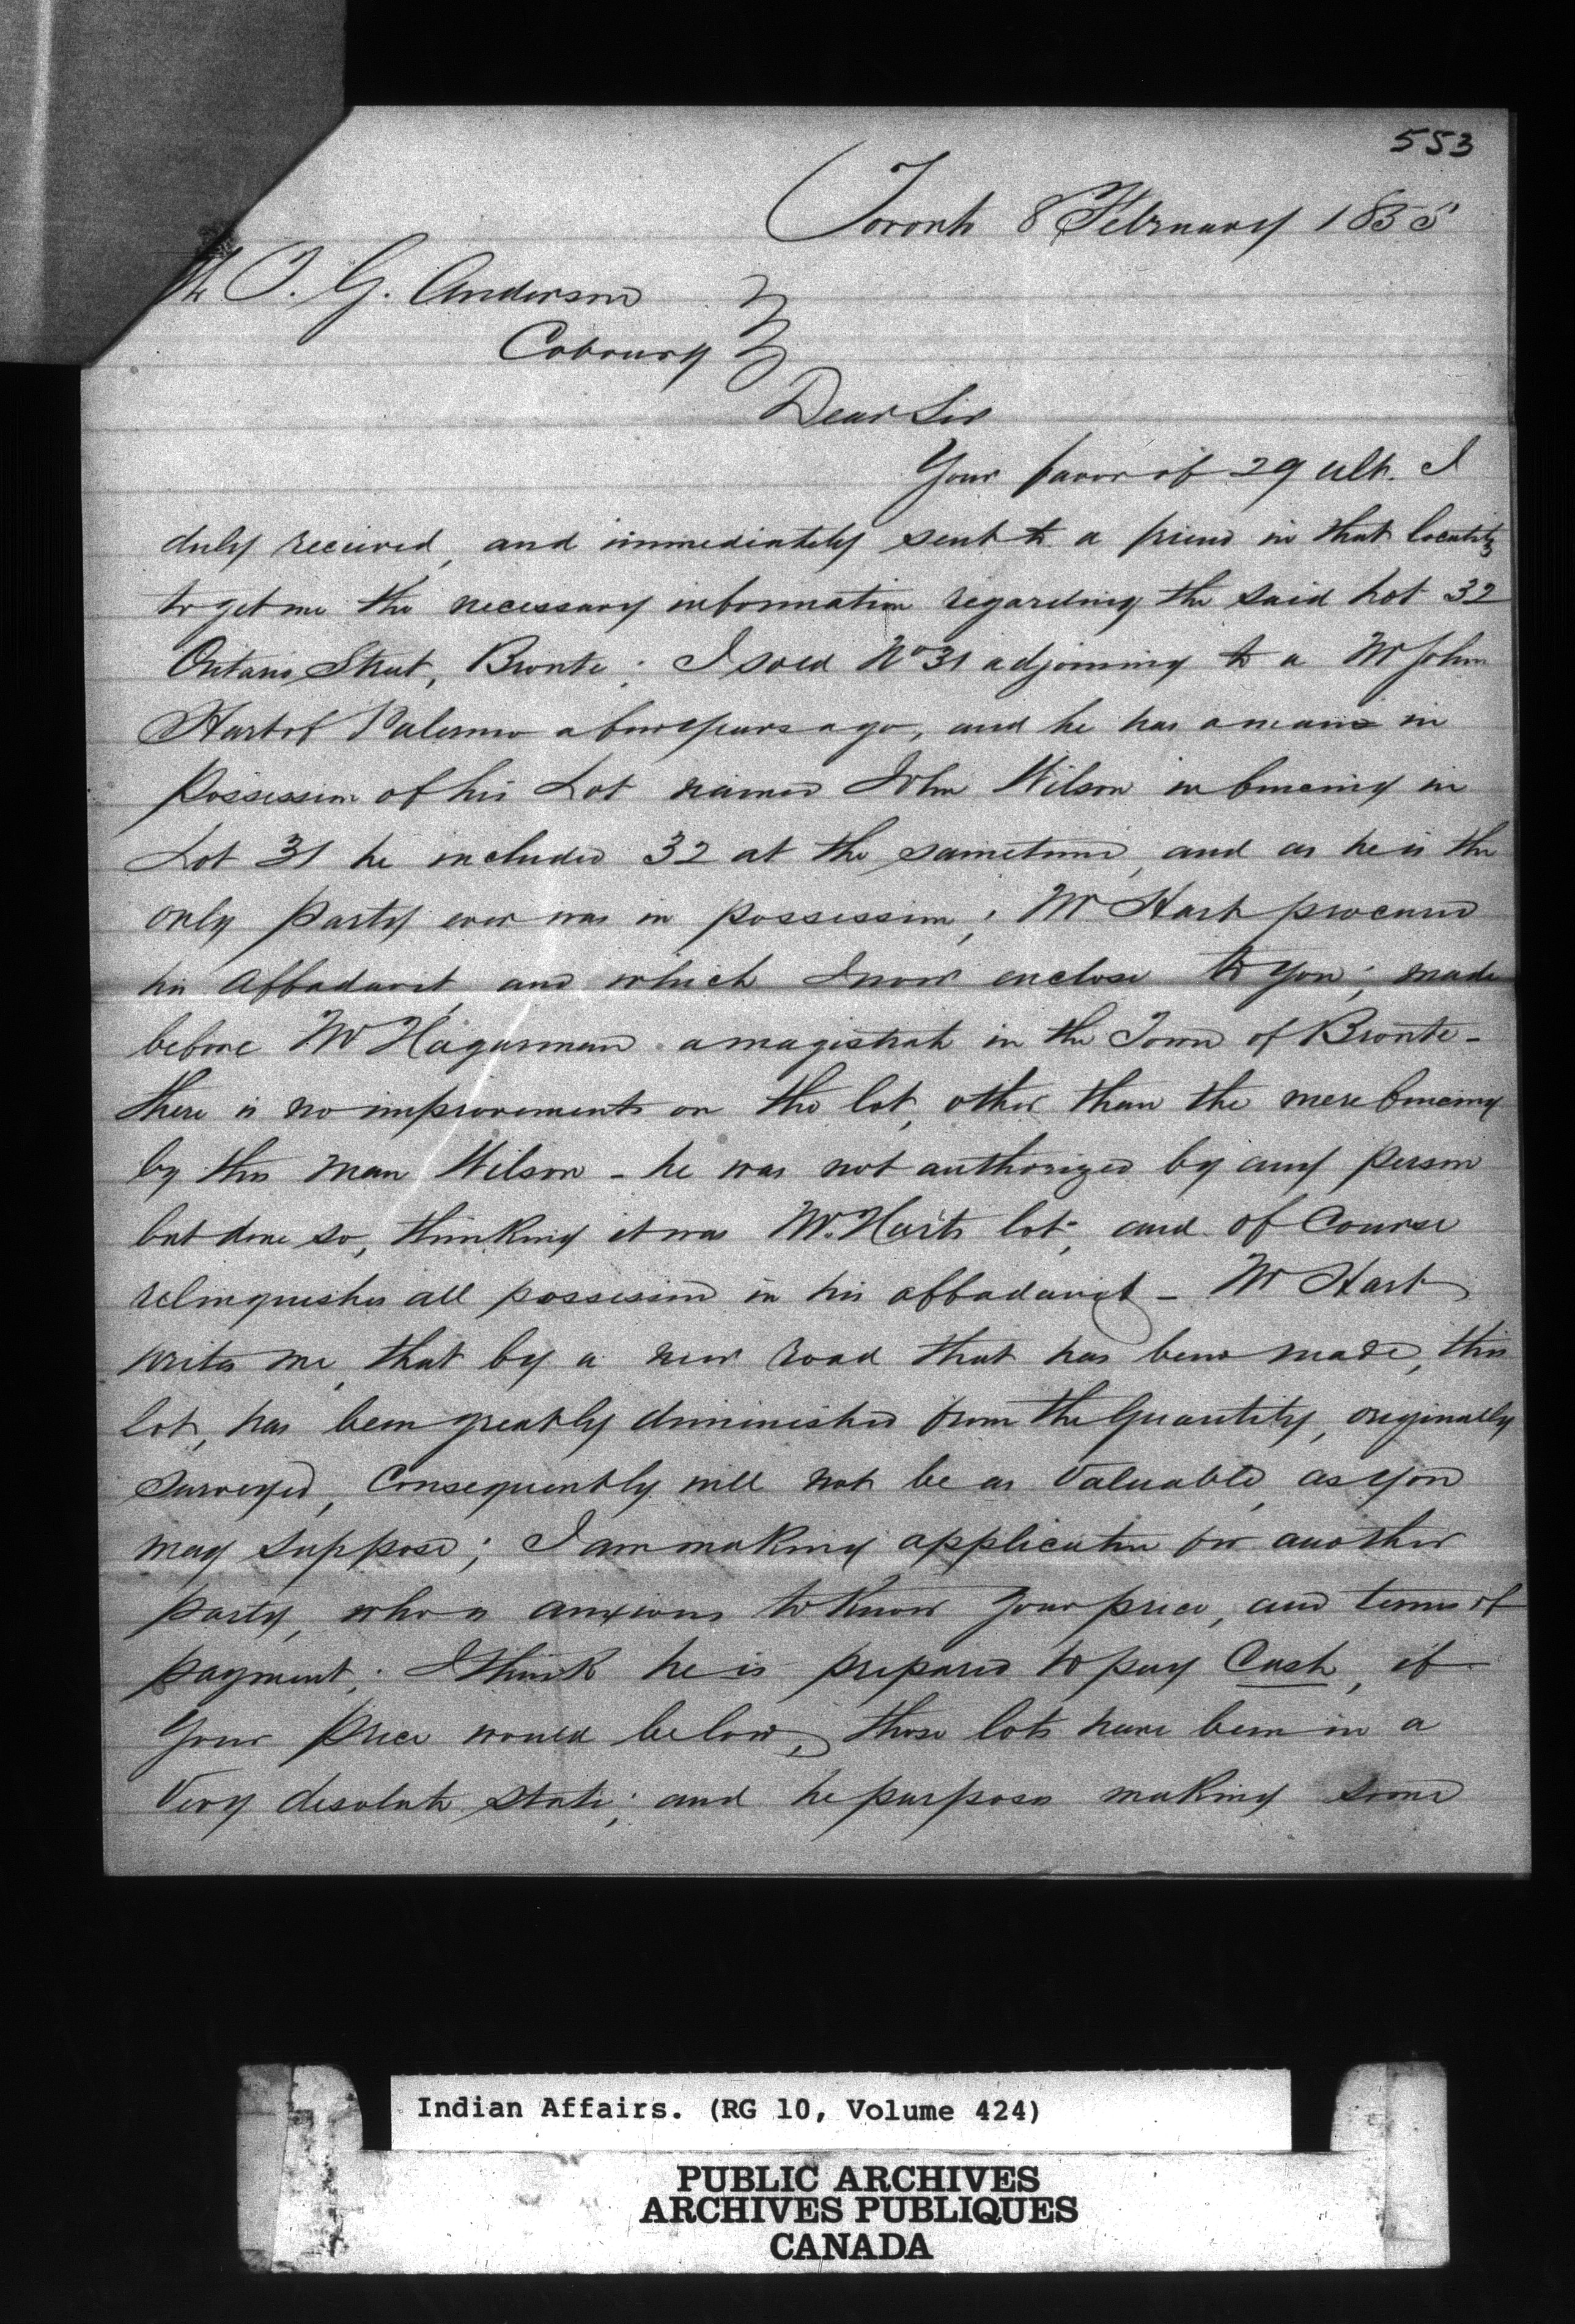 553
Toronto 8 February 1855
T. G. Anderson
Cobourg
Dear Sir
Your favor of 29 ult. I
duly received, and immediately sent to a friend in that locality
to get me the necessary information regarding the said Lot 32
Ontario Street, Bronte; I sold No 31 adjoining to a Mr John
Hart of Palermo a few years ago, and he has a man in
Possession of his Lot named John Wilson in fencing in
Lot 31 he included 32 at the sametime, and as he is the
only Party ever was in possession; Mr Hart procured
his Affadavit, and which I now enclose to you; made
before Mr Hagarman a magistrate in the Town of Bronte -
there is no improvements on the lot, other than the mere fencing
by this man Wilson - he was not authorized by any person
but done so, thinking it was Mr. Harts lot, and of Course
relinquishes all possession in his affadavit - Mr Hart
writes me, that by a new road that has been made, this
lot, has been greatly diminished from the Quantity, originally
surveyed, Consequently will not be as Valuable, as you
may suppose; I am making application for another
party, who is anxious to know your price, and terms of
payment; I think he is prepared to pay Cash, if
your price would be low, those lots have been in a
Very desolate state; and he purposes making some
Indian Affairs. (RG 10, Volume 424)
PUBLIC ARCHIVES
ARCHIVES PUBLIQUES
CANADA